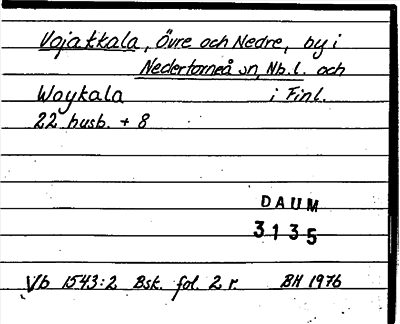 Vojakkala, Övre och Nedre, by i
Nedertorneå sn, Nb.l. och
Woykala i Finl.
22 husb. + 8
DAUM
3135
Vb 1543:2 Bsk. fol. 2 r. BH 1976